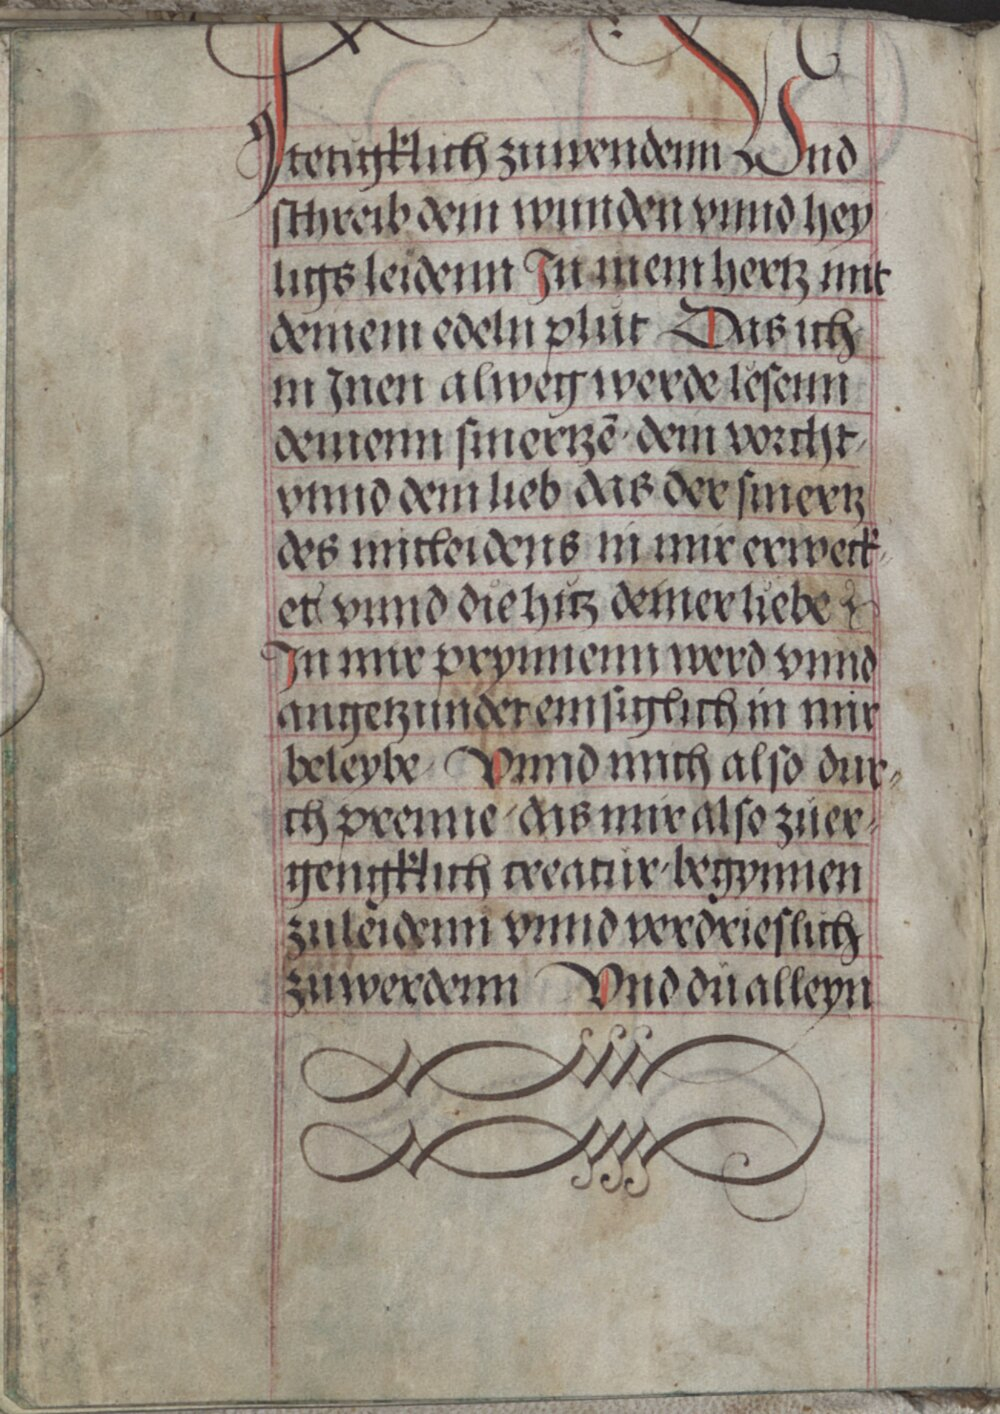 stetigklich zuwendenn Vnd
schreib dein wunden vnnd hey
ligs leidenn In mein hertz mit
deinem edeln plůt Das ich
in Inen alweg werde lesenn
deinenn smertzē · dein vorcht ·
vnnd dein lieb das der smertz
des mitleidens in mir erweck-
et vnnd die hitz deiner liebe
In mir prynnenn werd vnnd
angetzundet emsiglich in mir
beleybe Vnnd mich also dur-
ch prenne · das mir also zuer-
gengklich creatur · begynnen
zuleidenn vnnd verdrieslich
zuwerdenn Vnd dů alleyn